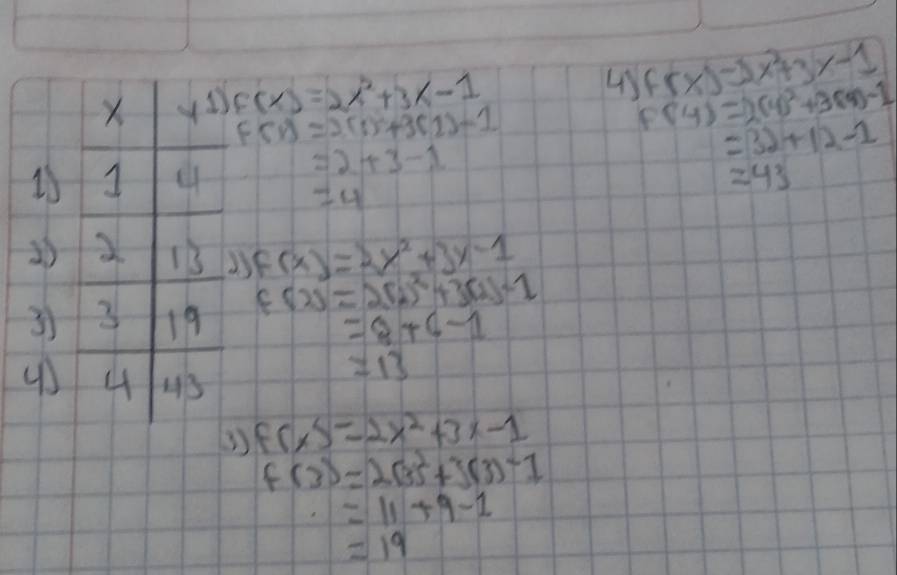 x | y
1) 1 | 4
2) 2 | 13
3) 3 | 19
4) 4 | 43
1) f(x) = 2x² + 3x - 1
f(1) = 2(1)² + 3(1) - 1
= 2 + 3 - 1
= 4
2) f(x) = 2x² + 3x - 1
f(2) = 2(2)² + 3(2) - 1
= 8 + 6 - 1
= 13
3) f(x) = 2x² + 3x - 1
f(3) = 2(3)² + 3(3) - 1
= 11 + 9 - 1
= 19
4) f(x) = 2x² + 3x - 1
f(4) = 2(4)² + 3(4) - 1
= 32 + 12 - 1
= 43